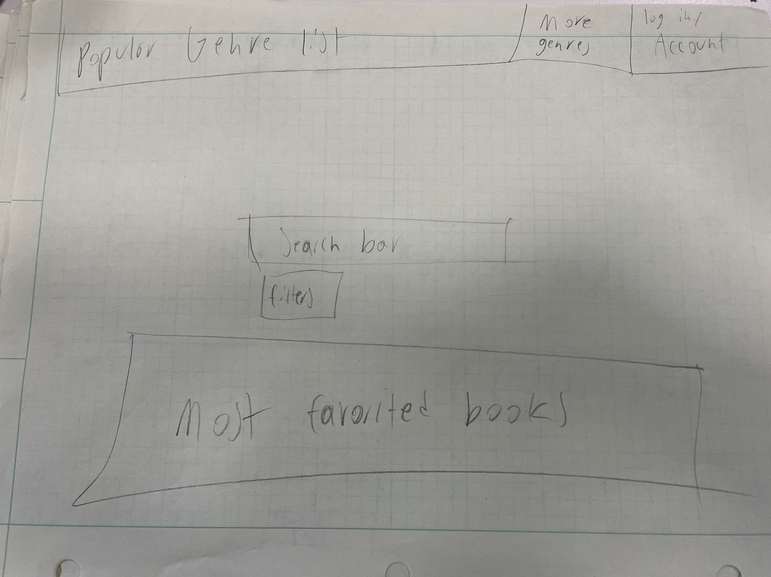 Popular Genre list
More
genres
log in/
Account
Search bar
filters
Most favorited books